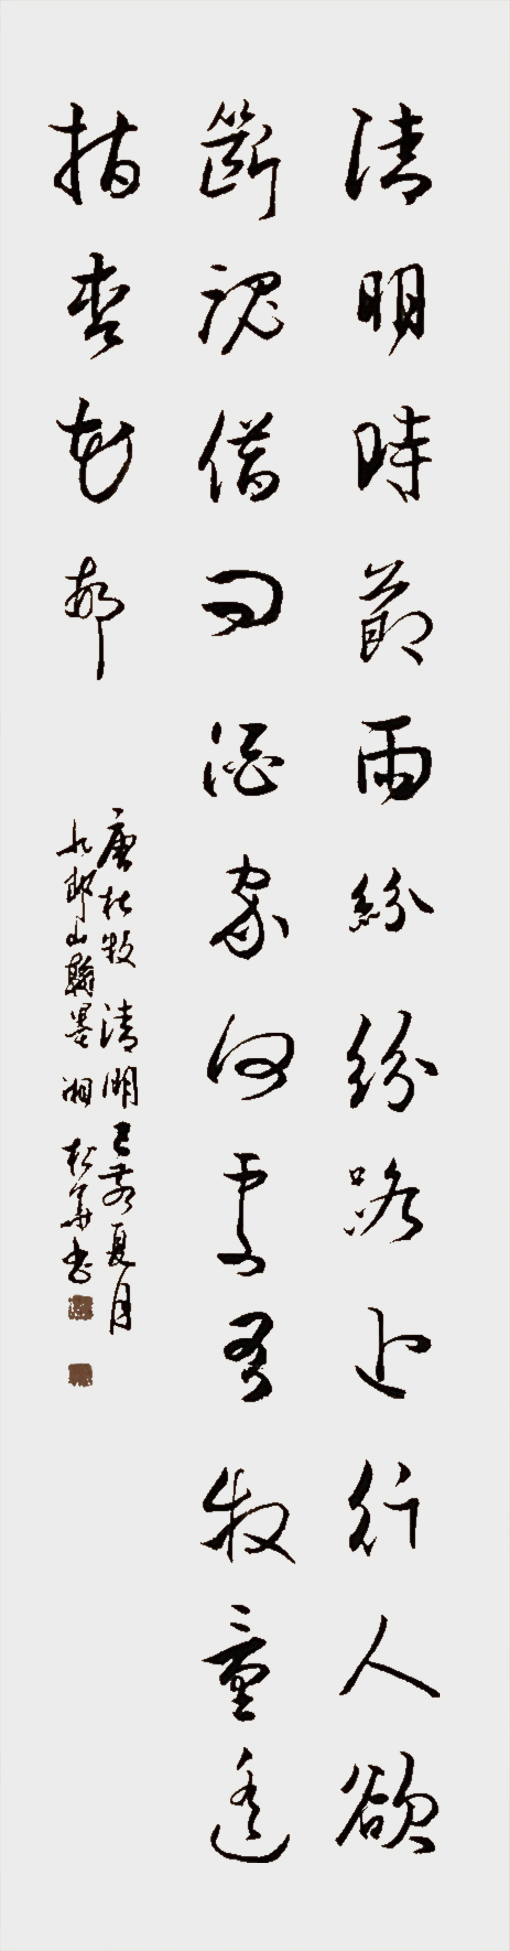 清明時節雨紛紛路上行人欲
斷魂借問酒家何處有牧童遙
指杏花邨
唐杜牧清明己亥夏月
九郎山翰墨湘松華書